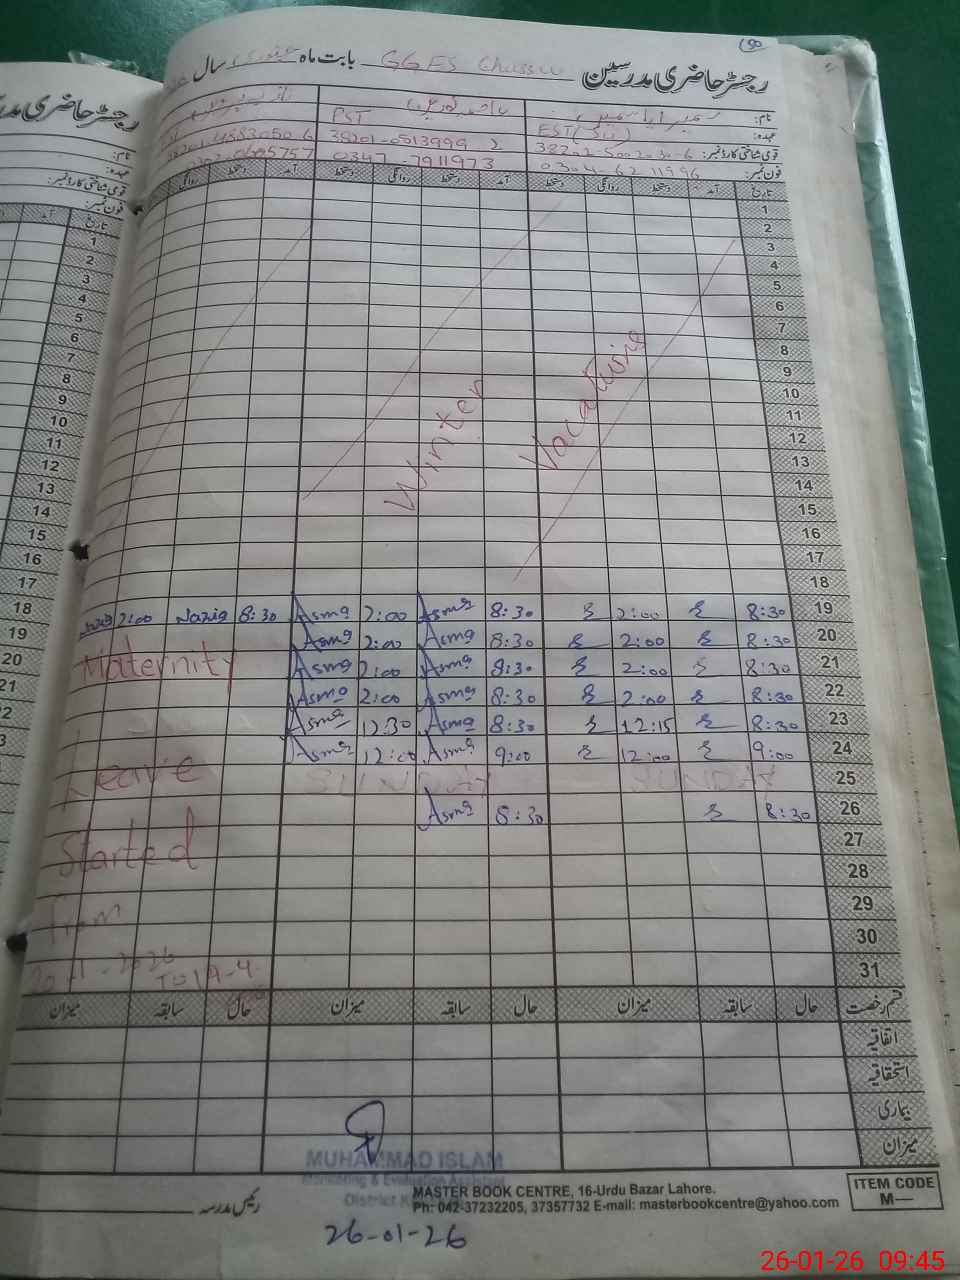 رجسٹر حاضری مدرسین GGES Chassu بابت ماہ جنوری سال
نام:
عہدہ: EST PST
قومی شناختی کارڈ نمبر: 38201-0513999-2
فون نمبر: 0304-6211996 0347-7911973
تاریخ آمد دستخط روانگی دستخط آمد دستخط روانگی دستخط آمد دستخط روانگی
1
2
3
4
5
6
7
8
9
10
11
12
13
14
15
16
17
18
Winter Vacations
19 8:30 2:00 8:30 Asma 2:00 Asma 8:30 Nazia 2:00 Nazia
20 8:30 2:00 8:30 Asma 2:00 Asma
21 8:30 2:00 8:30 Asma 2:00 Asma
22 8:30 2:00 8:30 Asma 2:00 Asma
23 8:30 12:15 8:30 Asma 12:30 Asma
24 9:00 12:00 9:00 Asma 12:00 Asma
25 SUNDAY SUNDAY
26 8:30 8:30 Asma
27
28
29
30
31
Maternity
Leave
Started
From
20-1-2026
To 19-4-
قسم رخصت حال سابقہ میزان حال سابقہ میزان حال سابقہ میزان
اتفاقیہ
استحقاقیہ
بیماری
میزان
MUHAMMAD ISLAM
Monitoring & Evaluation Assistant
District
26-01-26
رئیس مدرسہ
MASTER BOOK CENTRE, 16-Urdu Bazar Lahore.
Ph: 042-37232205, 37357732 E-mail: masterbookcentre@yahoo.com
ITEM CODE
M—
رجسٹر حاضری
نام:
عہدہ:
قومی شناختی کارڈ نمبر:
فون نمبر:
تاریخ آمد
1
2
3
4
5
6
7
8
9
10
11
12
13
14
15
16
17
18
19
20
21
26-01-26 09:45